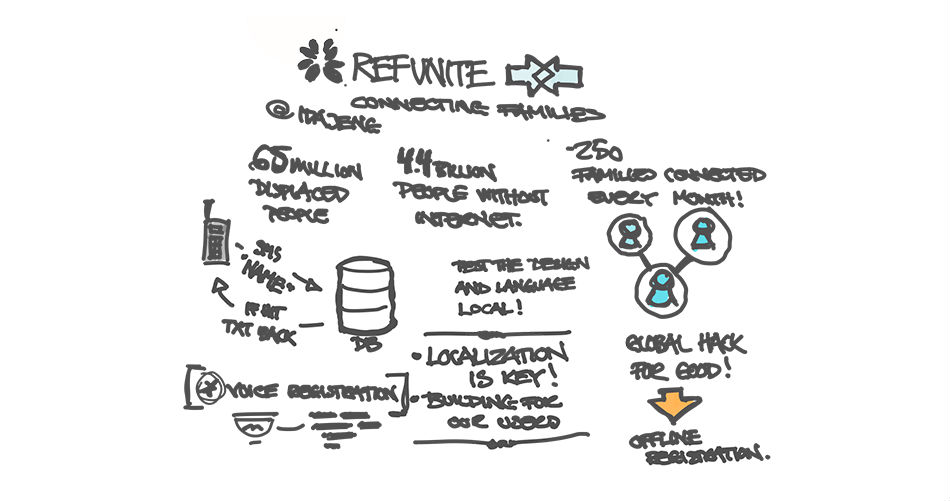 REFUNITE
CONNECTING FAMILIES
@IDAJENG
65 MILLION
DISPLACED
PEOPLE
4.4 BILLION
PEOPLE WITHOUT
INTERNET.
250
FAMILIES CONNECTED
EVERY MONTH!
SMS
NAME+
IF HIT
TXT BACK
DB
TEST THE DESIGN
AND LANGUAGE
LOCAL!
• LOCALIZATION
IS KEY!
• BUILDING FOR
OUR USERS
VOICE REGISTRATION
GLOBAL HACK
FOR GOOD!
OFFLINE
REGISTRATION.